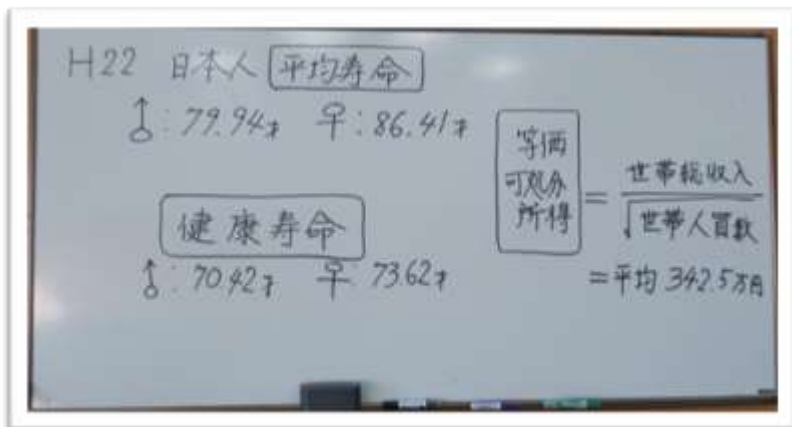 H22 日本人 平均寿命
♂:79.94才 ♀:86.41才
健康寿命
♂:70.42才 ♀:73.62才
等価
可処分
所得
= 世帯総収入
√世帯人員数
=平均 342.5万円